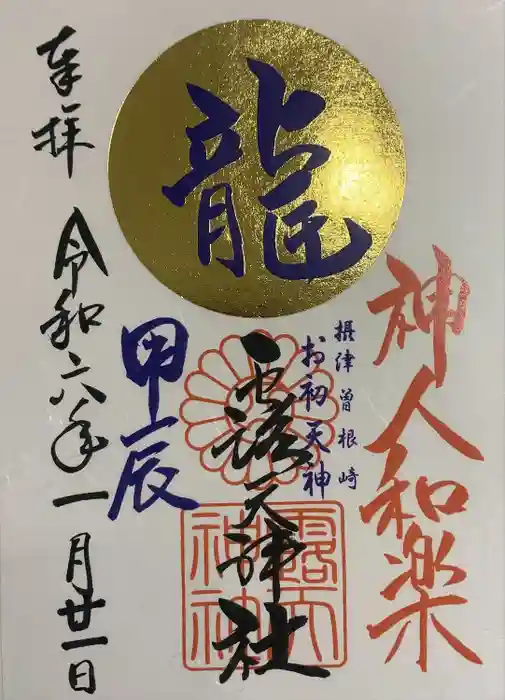 龍
神人和楽
摂津曽根崎
お初天神
露天神社
甲辰
奉拝
令和六年一月廿一日